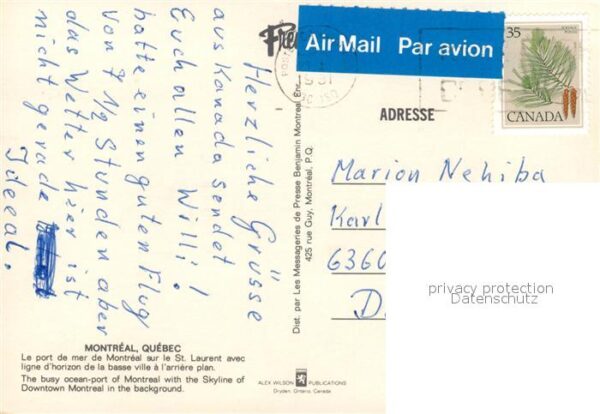 Air Mail Par avion
35
CANADA
ADRESSE
Herzliche Grüsse
aus Kanada sendet
Euch allen Willi!
hatte einen guten Flug
von 7 1/2 Stunden aber
das Wetter hier ist
nicht gerade
Ideeal.
Dist. par Les Messageries de Presse Benjamin Montreal Enr.
425 rue Guy, Montréal, P.Q.
Marion Nehiba
Karl
6360
D
privacy protection
Datenschutz
MONTRÉAL, QUÉBEC
Le port de mer de Montréal sur le St. Laurent avec
ligne d'horizon de la basse ville à l'arrière plan.
The busy ocean-port of Montreal with the Skyline of
Downtown Montreal in the background.
ALEX WILSON PUBLICATIONS
Dryden, Ontario, Canada